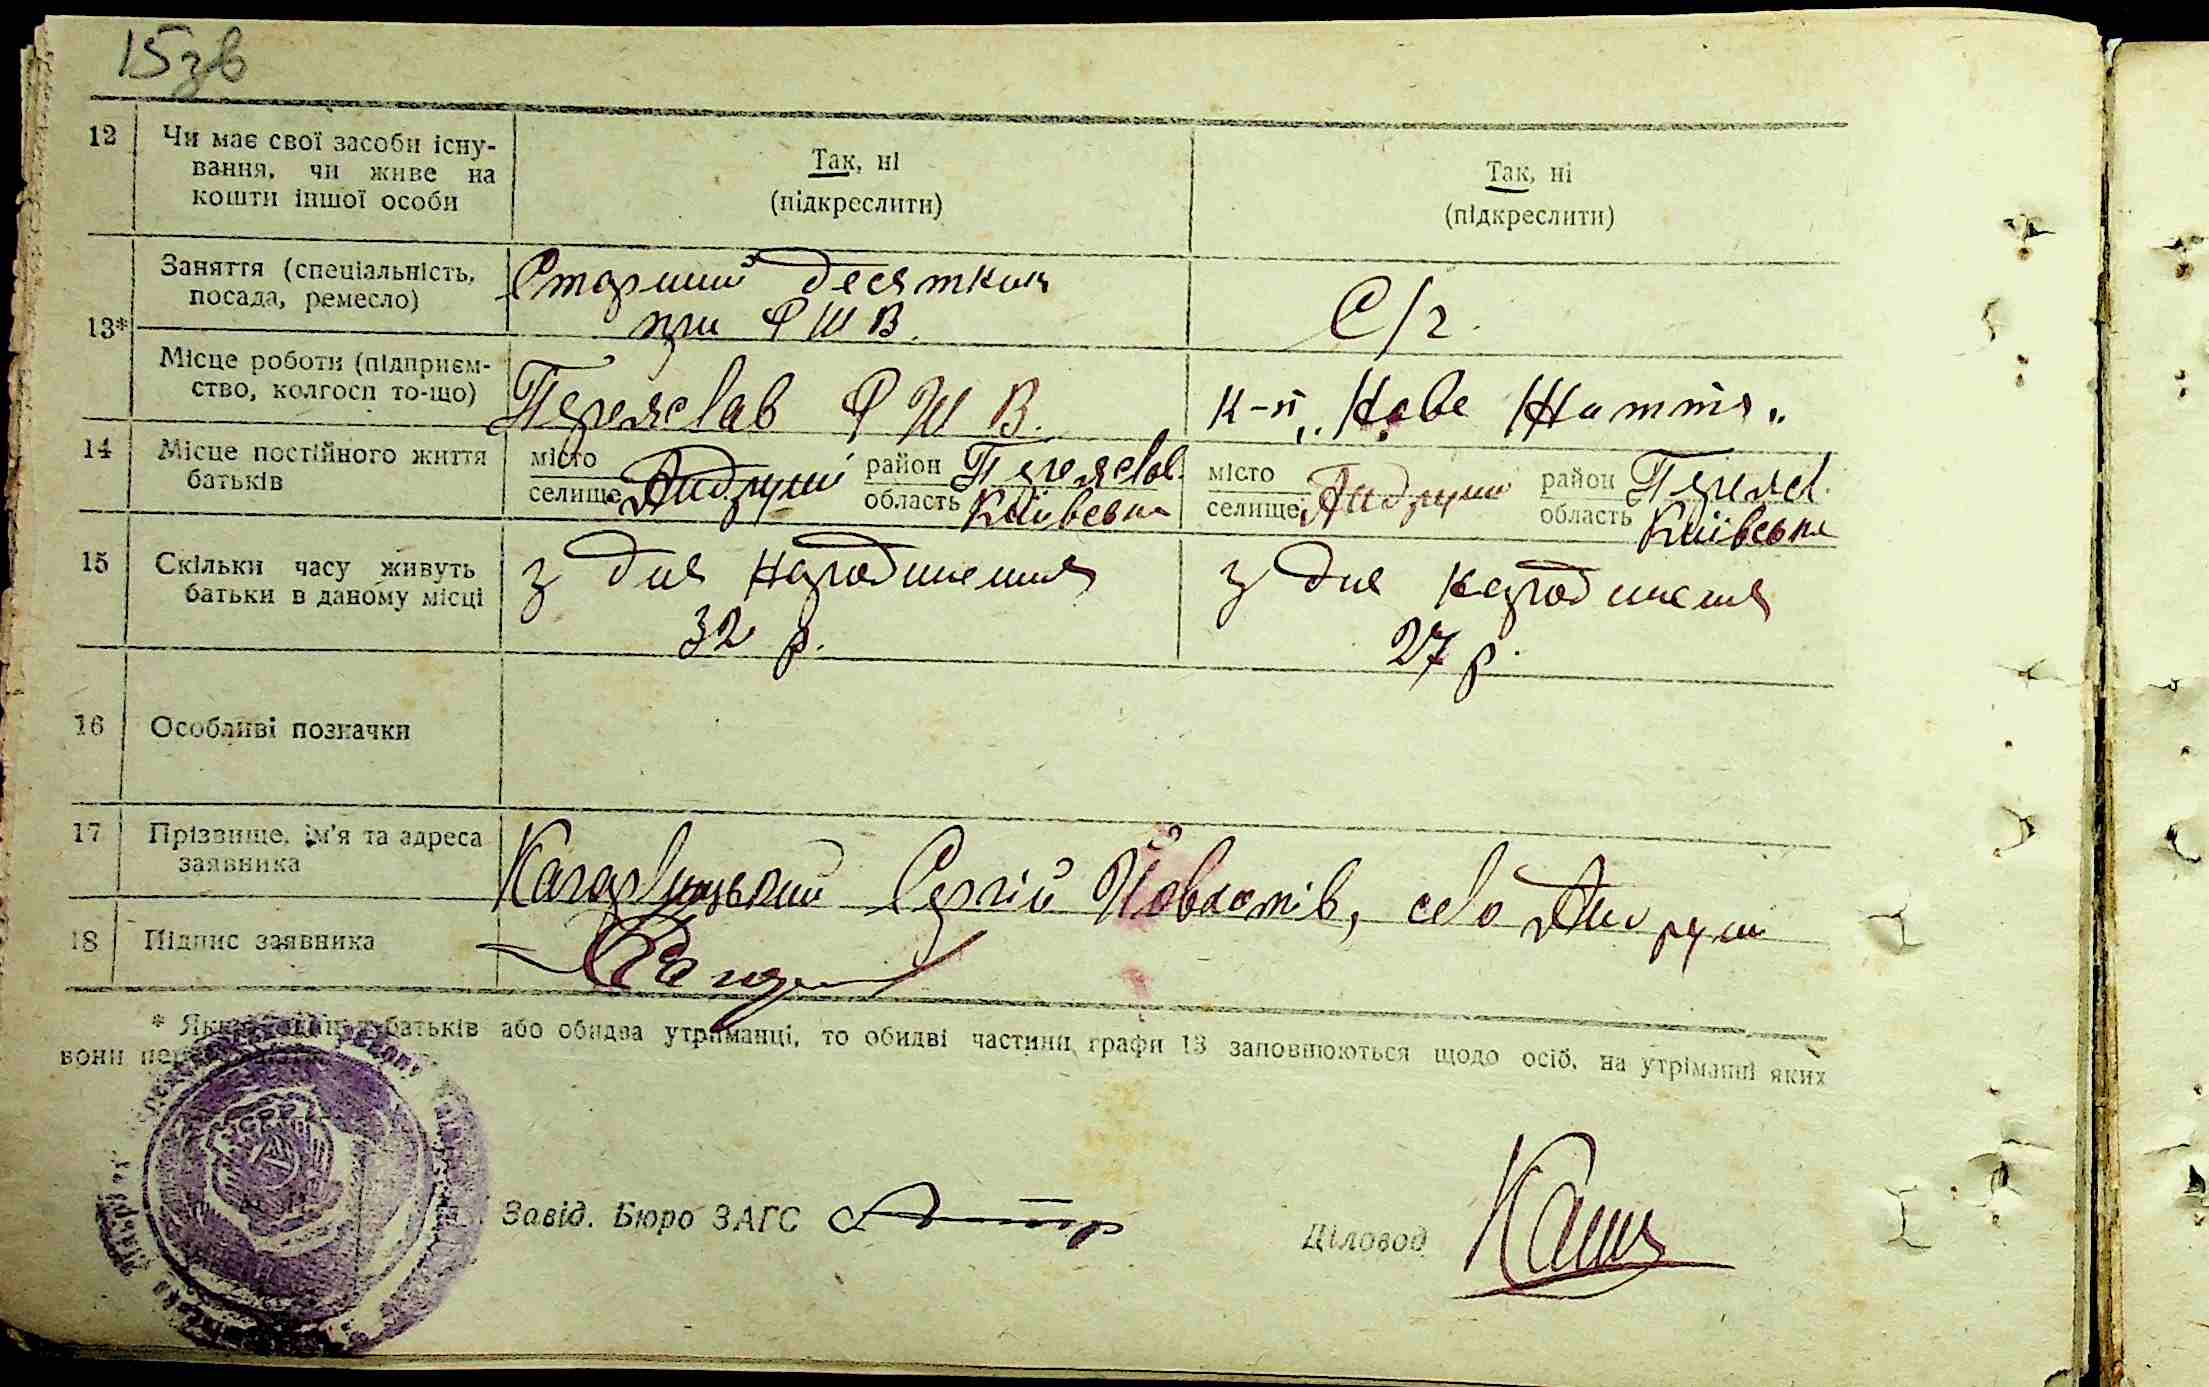 15зв
12 Чи має свої засоби існу-
вання, чи живе на
кошти іншої особи
Так, ні
(підкреслити)
Так, ні
(підкреслити)
13*
Заняття (спеціальність,
посада, ремесло)
Старший десятник
при ФШВ.
С/г.
Місце роботи (підприєм-
ство, колгосп то-що)
Переяслав ФШВ.
к-п „Нове Життя„
14 Місце постійного життя
батьків
місто
селище Андруші
район Переяслав.
область Київська
місто
селище Андруші
район Переясл.
область Київська
15 Скільки часу живуть
батьки в даному місці
з дня народження
32 р.
з дня народження
27 р.
16 Особливі позначки
17 Прізвище, ім'я та адреса
заявника
Кагарлицький Сергій Йовхомів, село Андруши
18 Підпис заявника
* батьків або обидва утриманці, то обидві частини графи 13 заповнюються щодо осіб, на утриманні яких
вони
УСРР
Завід. Бюро ЗАГС
Діловод